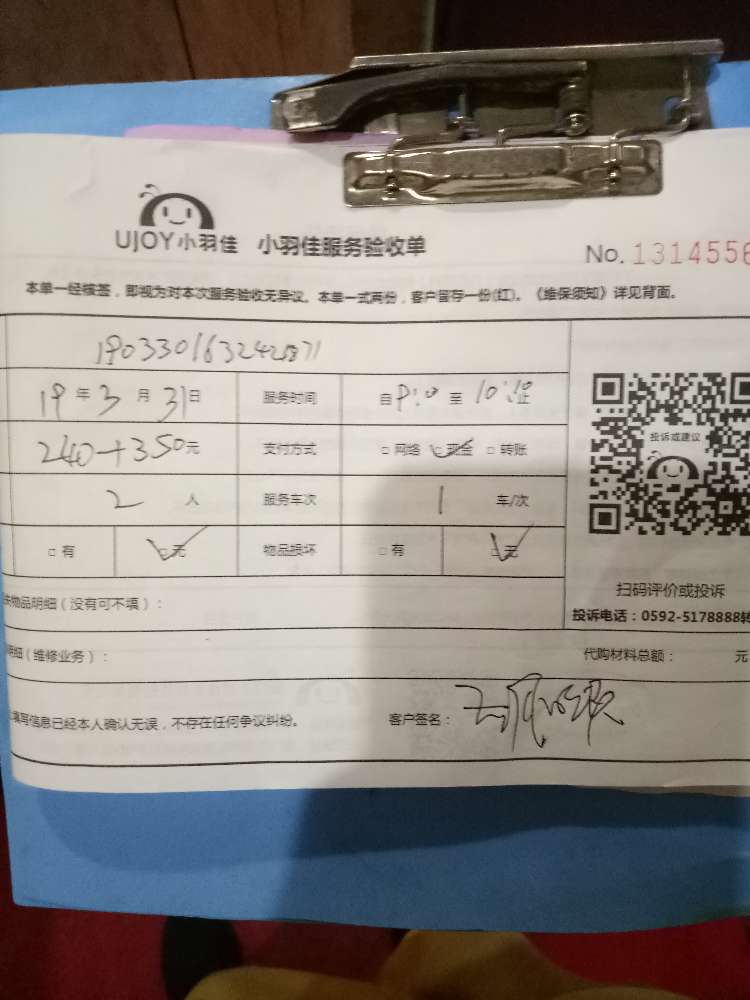 UJOY小羽佳 小羽佳服务验收单
No. 1314556
本单一经核签，即视为对本次服务验收无异议。本单一式两份，客户留存一份(红)。《维保须知》详见背面。
19年3月31日 服务时间 自 至 10:10止
240+350元 支付方式 □ 网络 现金 □ 转账
投诉或建议
2人 服务车次 1 车/次
□ 有 □ 无 物品损坏 □ 有 □ 无
扫码评价或投诉
物品明细（没有可不填）：
投诉电话：0592-5178888转
明细（维修业务）： 代购材料总额： 元
填写信息已经本人确认无误，不存在任何争议纠纷。 客户签名：